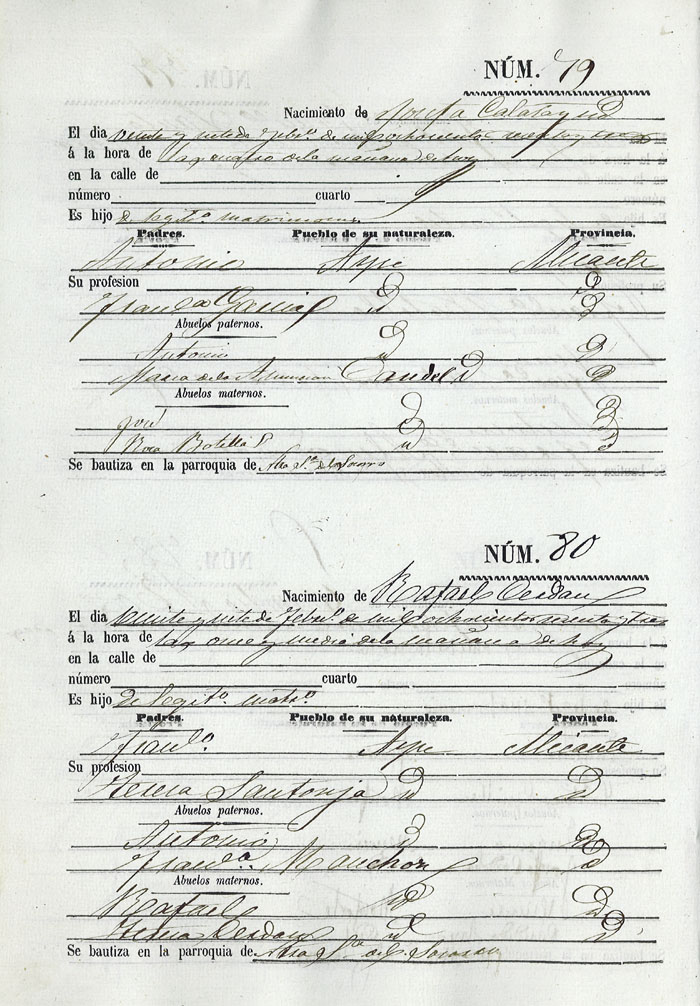 NÚM. 79
Nacimiento de Josefa Calatayud
El dia veinte y siete de Febro. de mil ochocientos sesenta y tres
á la hora de las cuatro de la mañana de hoy
en la calle de
número cuarto
Es hijo de legito. matrimonio
Padres. Pueblo de su naturaleza. Provincia.
Antonio Aspe Alicante
Su profesion
Franca. Garcia Id Id
Abuelos paternos.
Antonio Id Id
Maria de la Asuncion Candela Id
Abuelos maternos.
José Id Id
Rosa Botella Id Id
Se bautiza en la parroquia de Ntra Sra. del Socorro
NÚM. 80
Nacimiento de Rafael Cerdan
El dia veinte y siete de Febro. de mil ochocientos sesenta y tres
á la hora de las once y media de la mañana de hoy
en la calle de
número cuarto
Es hijo de legito. matro.
Padres. Pueblo de su naturaleza. Provincia.
Franco. Aspe Alicante
Su profesion
Teresa Santonja Id Id
Abuelos paternos.
Antonio Id Id
Franca. Manchon Id
Abuelos maternos.
Rafael Id Id
Teresa Cerdan Id Id
Se bautiza en la parroquia de Ntra Sra del Socorro